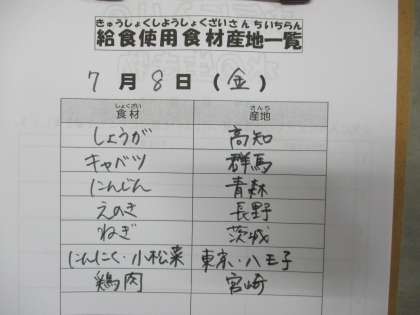 きゅうしょくしようしょくざいさんちいちらん
給食使用食材産地一覧
7月8日(金)
しょくざい さんち
食材 産地
しょうが 高知
キャベツ 群馬
にんじん 青森
えのき 長野
ねぎ 茨城
にんにく・小松菜 東京・八王子
鶏肉 宮崎